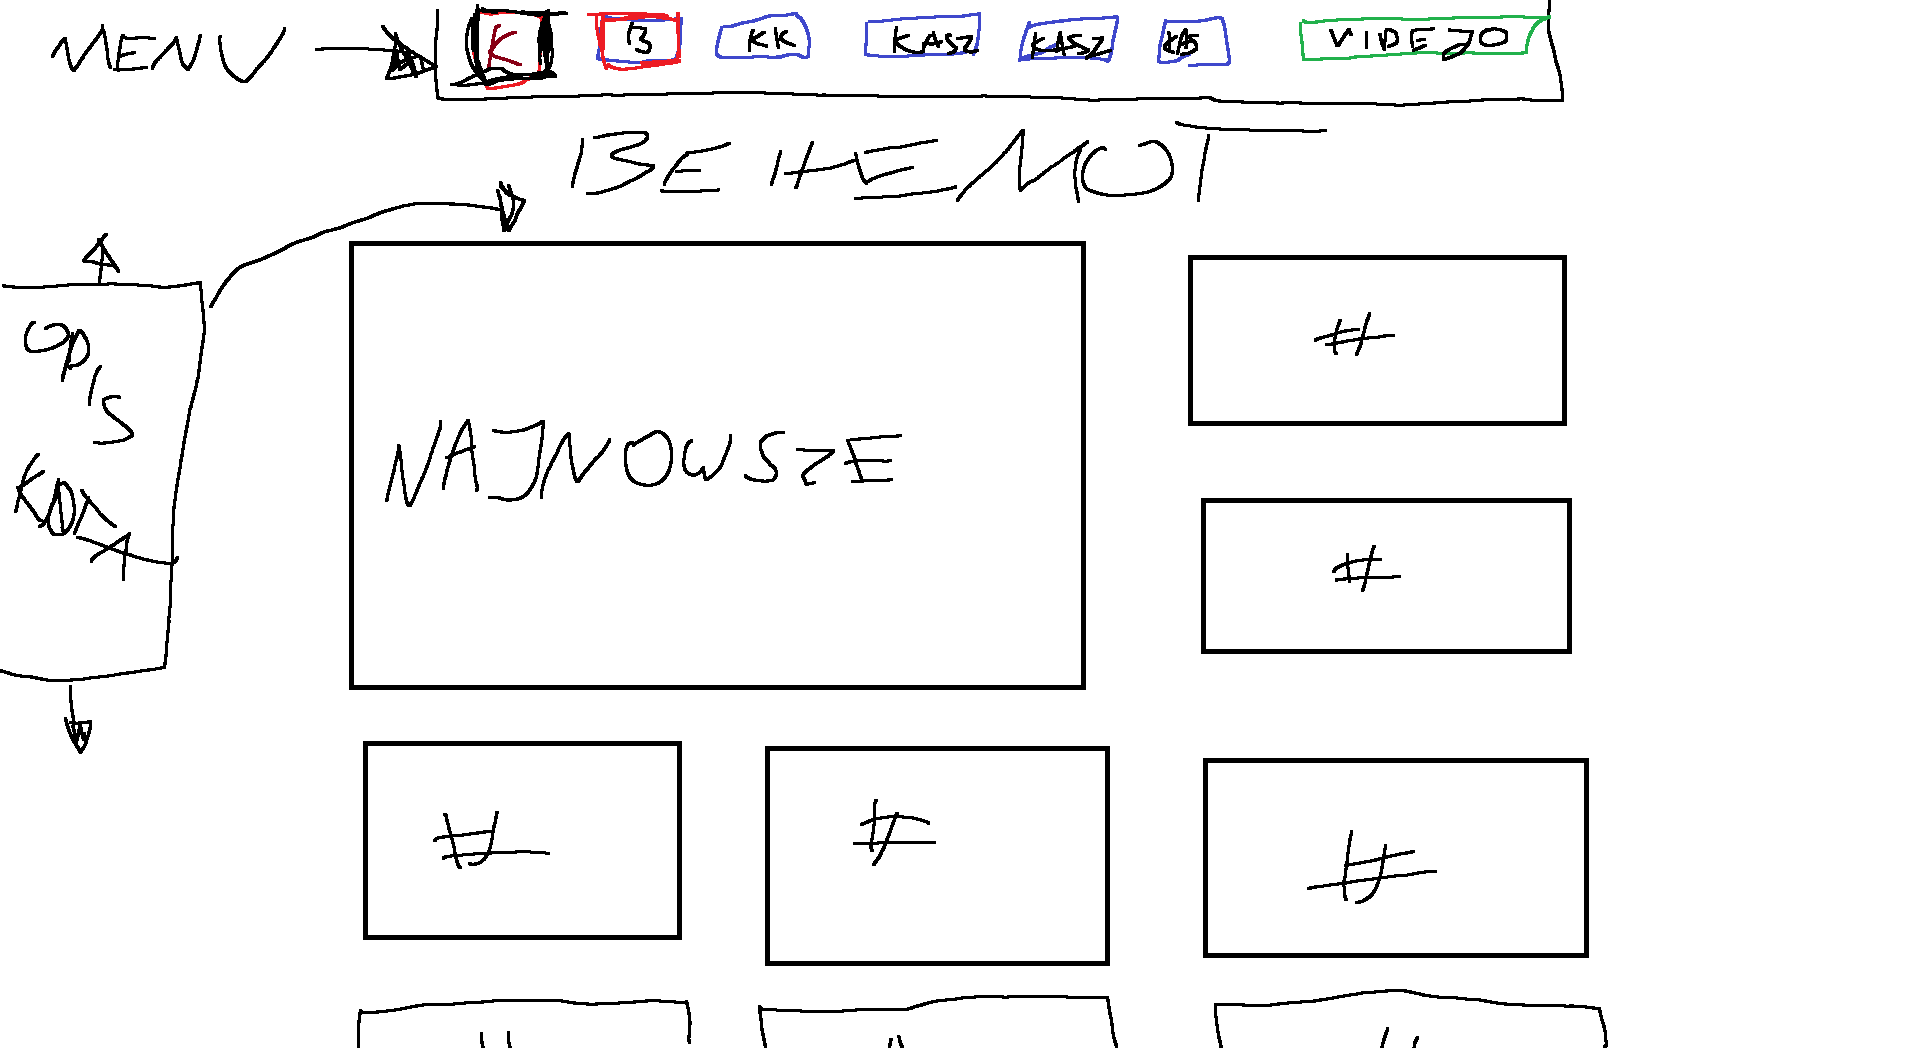 MENU
K B KK KASZ KASZ KAS VIDEJO
BEHEMOT
OPIS
NAJNOWSZE
#
#
# # #